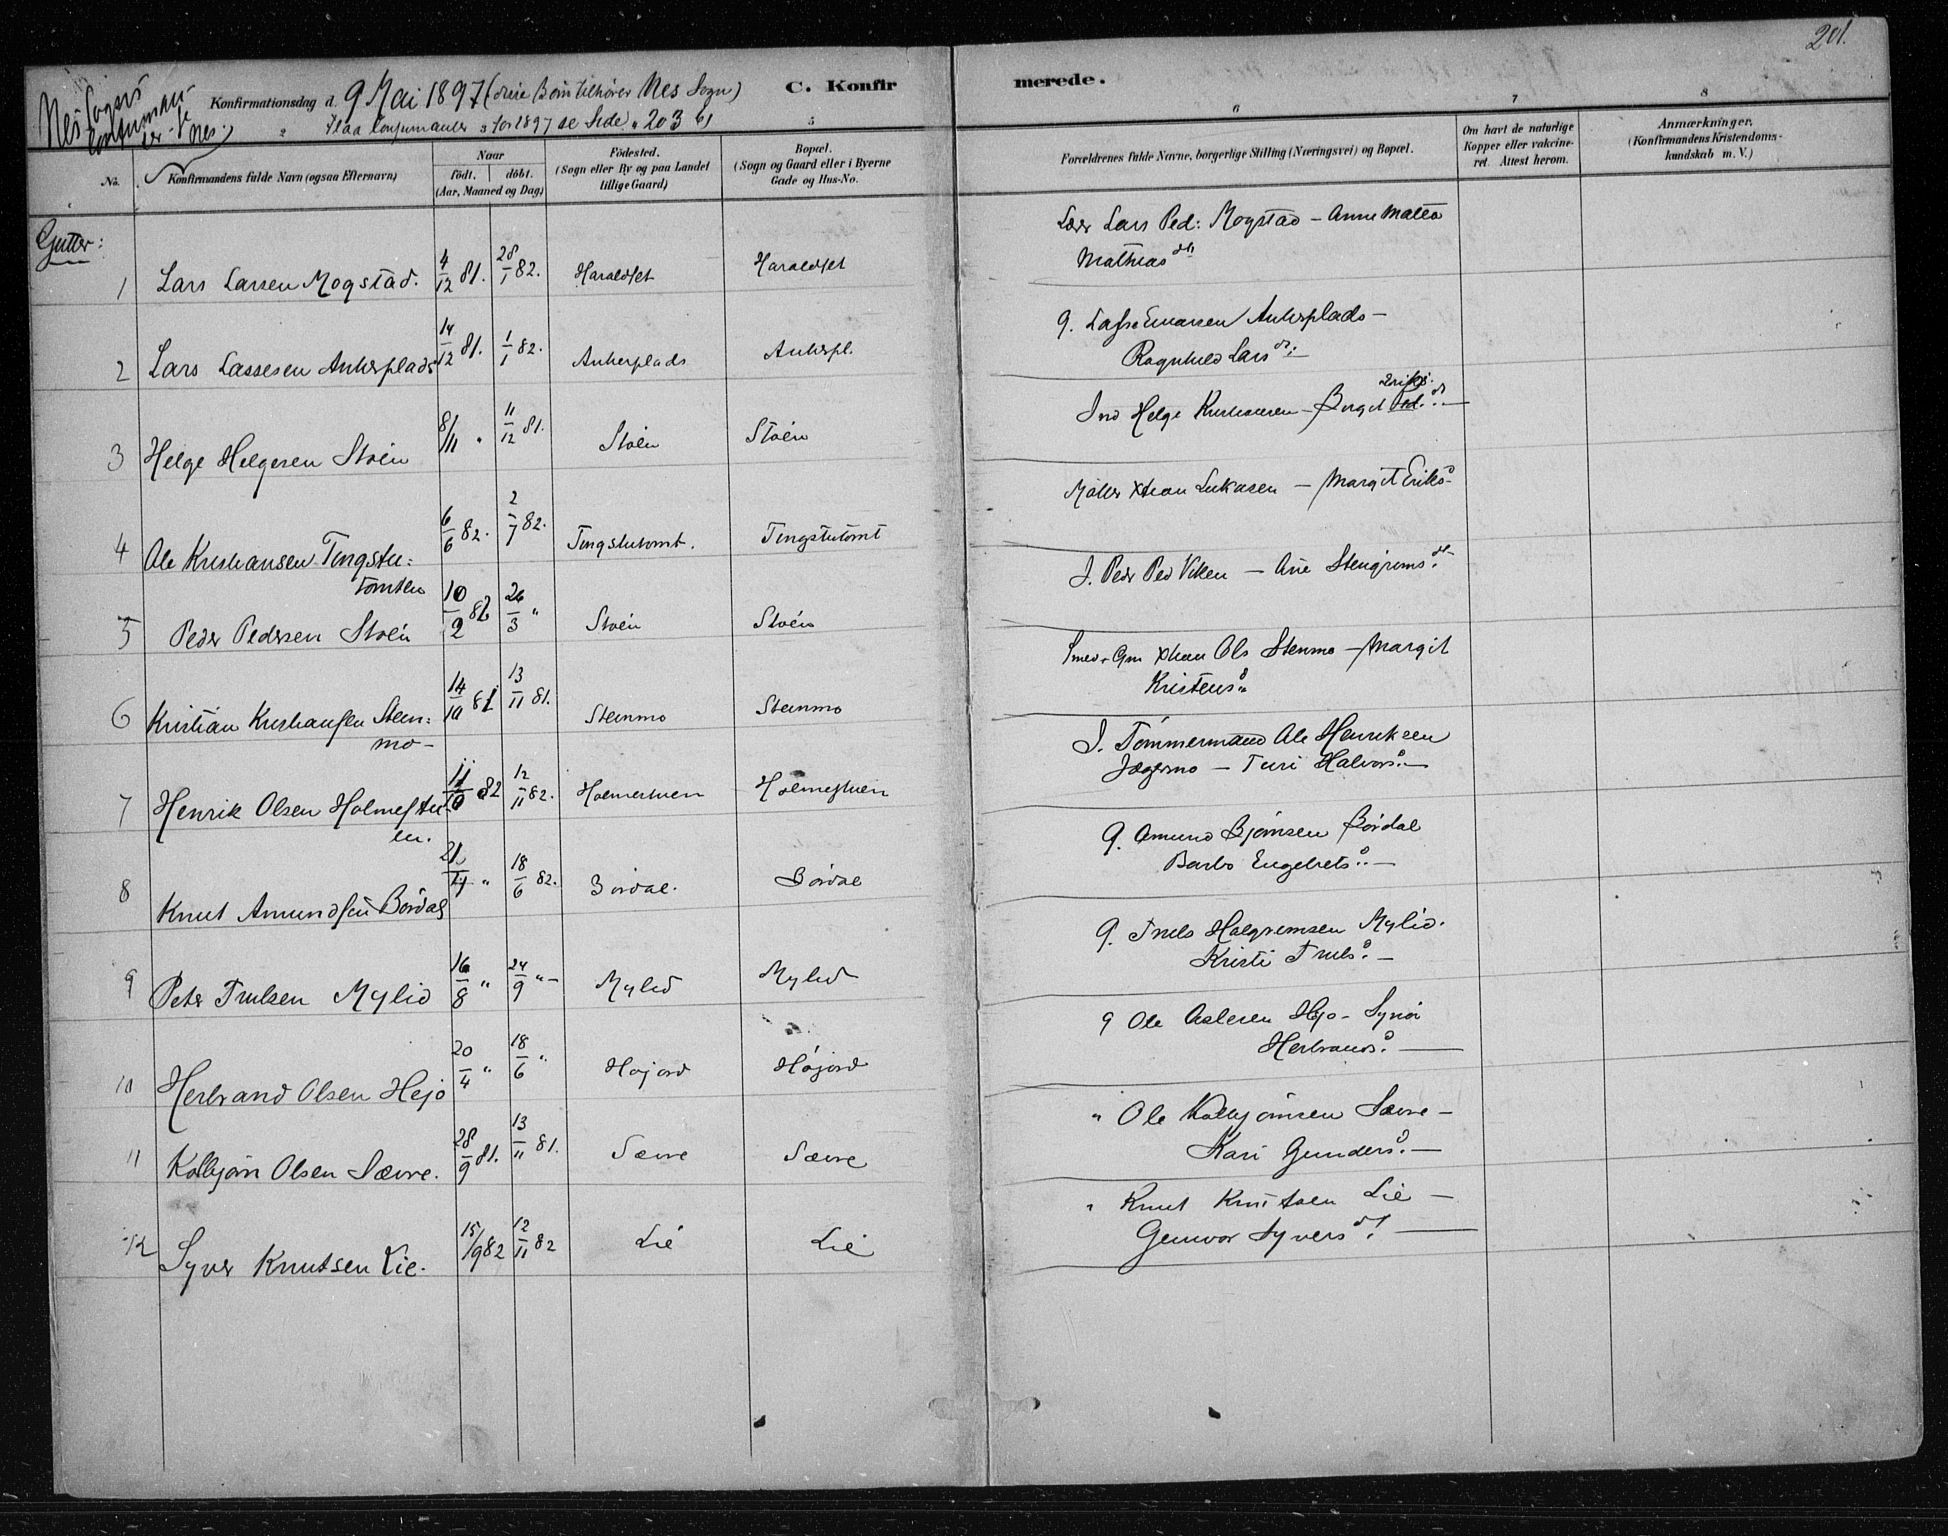 201.
Nes Sogns
Konfirmationsdag d. 9 Mai 1897 (disse Børn tilhører Nes Sogn) C. Konfirmerede.
Flaa Confirmanter for 1897 se Side 203
Nes.
1 2 5 6 7 8
No.
Konfirmandens fulde Navn (ogsaa Efternavn)
Naar
födt. döbt.
(Aar, Maaned og Dag)
Födested.
(Sogn eller By og paa Landet
tillige Gaard)
Bopæl.
(Sogn og Gaard eller i Byerne
Gade og Hus-No.
Forældrenes fulde Navne, borgerlige Stilling (Næringsvei) og Bopæl.
Om havt de naturlige
Kopper eller vakcine-
ret. Attest herom.
Anmærkninger.
(Konfirmandens Kristendoms-
kundskab m. V.)
Gutter:
1 Lars Larsen Mogstad. 4/12 81. 28/1 82. Haraldset Haraldset Lærer Lars Ped: Mogstad – Anne Mathea
Mathias dtr
2 Lars Lassesen Ankerplads 14/12 81. 1/1 82. Ankerplads Ankerpl. G. Lasse Evansen Ankerplads –
Ragnhild Lars d: –
3 Helge Helgesen Stoèn 8/11 " 11/12 81. Stoèn Stoèn Ind Helge Kristiansen – Bergit Ped. Eriks. d. –
4 Ole Kristiansen Tingstu= 6/6 82. 2/7 82. Tingstutomt. Tingstutomt Møller Xtian Lukasen – Margit Eriks d
tomten
5 Peder Pedersen Stoèn 10/2 82 26/3 " Stoèn Stoèn I. Peder Ped Viken – Ane Stengrims. d. –
6 Kristian Kristiansen Sten= 14/10 81 13/11 81. Stenmo Stenmo Smed, Gm Xtian Ols Stenmo – Margit
mo – Kristens d
7 Henrik Olsen Holmestu 11/9 82 12/11 82. Holmestuen Holmestuen I. Tømmermand Ole Henriksen
en. Jægermo – Turi Halvors d. –
8 Knut Amundsen Bördal 21/4 " 18/6 82. Bördal. Bördal G. Amund Bjørnsen Bördal
Barbo Engebrets d. –
9 Peter Trulsen Mylid 16/8 " 24/9 " – Mylid Mylid G. Truls Halgrimsen Mylid.
Kristi Truls d. –
10 Herbrand Olsen Hejo 20/4 " 18/6 " Höjord Höjord G Ole Aslesen Hejo – Synöi
Herbrands d. –
11 Kolbjørn Olsen Sævre. 28/9 81. 13/11 81. Sævre Sævre " Ole Kolbjørnsen Sævre –
Kari Gunders d. –
12 Syver Knutsen Lie. 15/9 82 12/11 82 Lie Lie " Knut Knutsen Lie –
Gunvor Syvers d. –